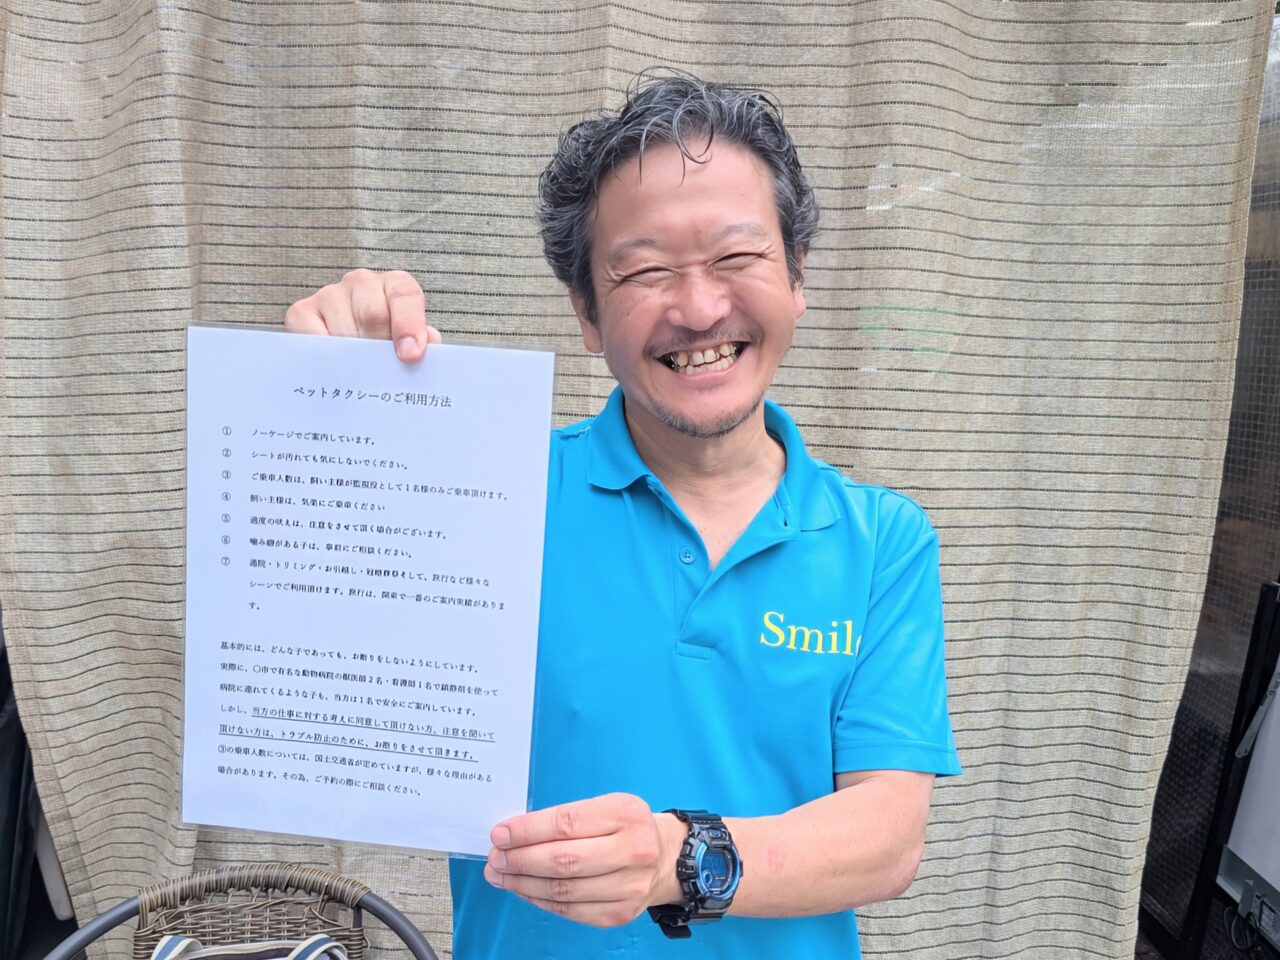 ペットタクシーのご利用方法
① ノーケージでご案内しています。
② シートが汚れても気にしないでください。
③ ご乗車人数は、飼い主様が監視役として１名様のみご乗車頂けます。
④ 飼い主様は、気楽にご乗車ください
⑤ 過度の吠えは、注意をさせて頂く場合がございます。
⑥ 噛み癖がある子は、事前にご相談ください。
⑦ 通院・トリミング・お引越し・冠婚葬祭そして、旅行など様々な
シーンでご利用頂けます。旅行は、関東で一番のご案内実績がありま
す。
基本的には、どんな子であっても、お断りをしないようにしています。
実際に、〇市で有名な動物病院の獣医師２名・看護師１名で鎮静剤を使って
病院に連れてくるような子も、当方は１名で安全にご案内しています。
しかし、当方の仕事に対する考えに同意して頂けない方、注意を聞いて
頂けない方は、トラブル防止のために、お断りをさせて頂きます。
③の乗車人数については、国土交通省が定めていますが、様々な理由がある
場合があります。その為、ご予約の際にご相談ください。
Smile